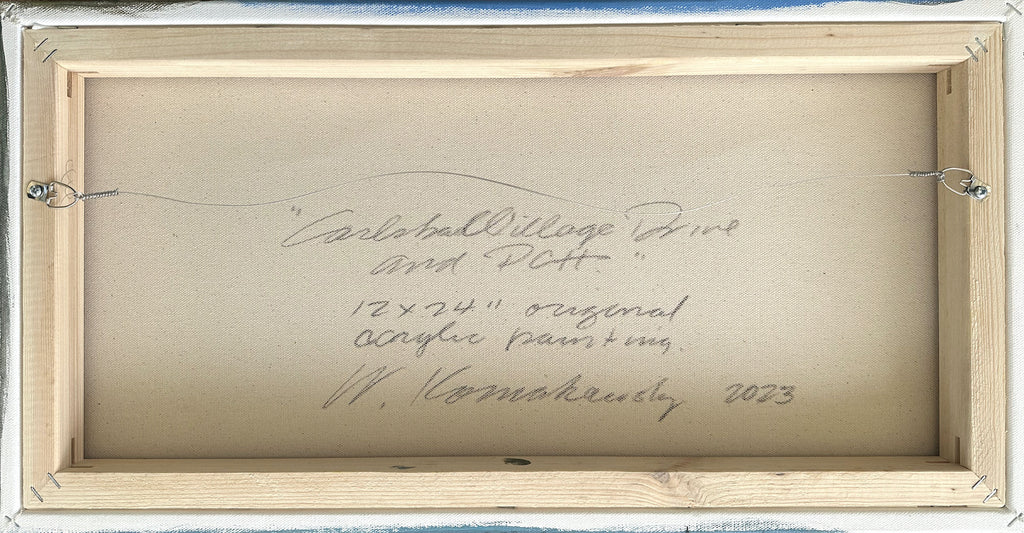 "Carlsbad Village Drive
and PCH."
12 x 24" original
acrylic painting.
W. 2023